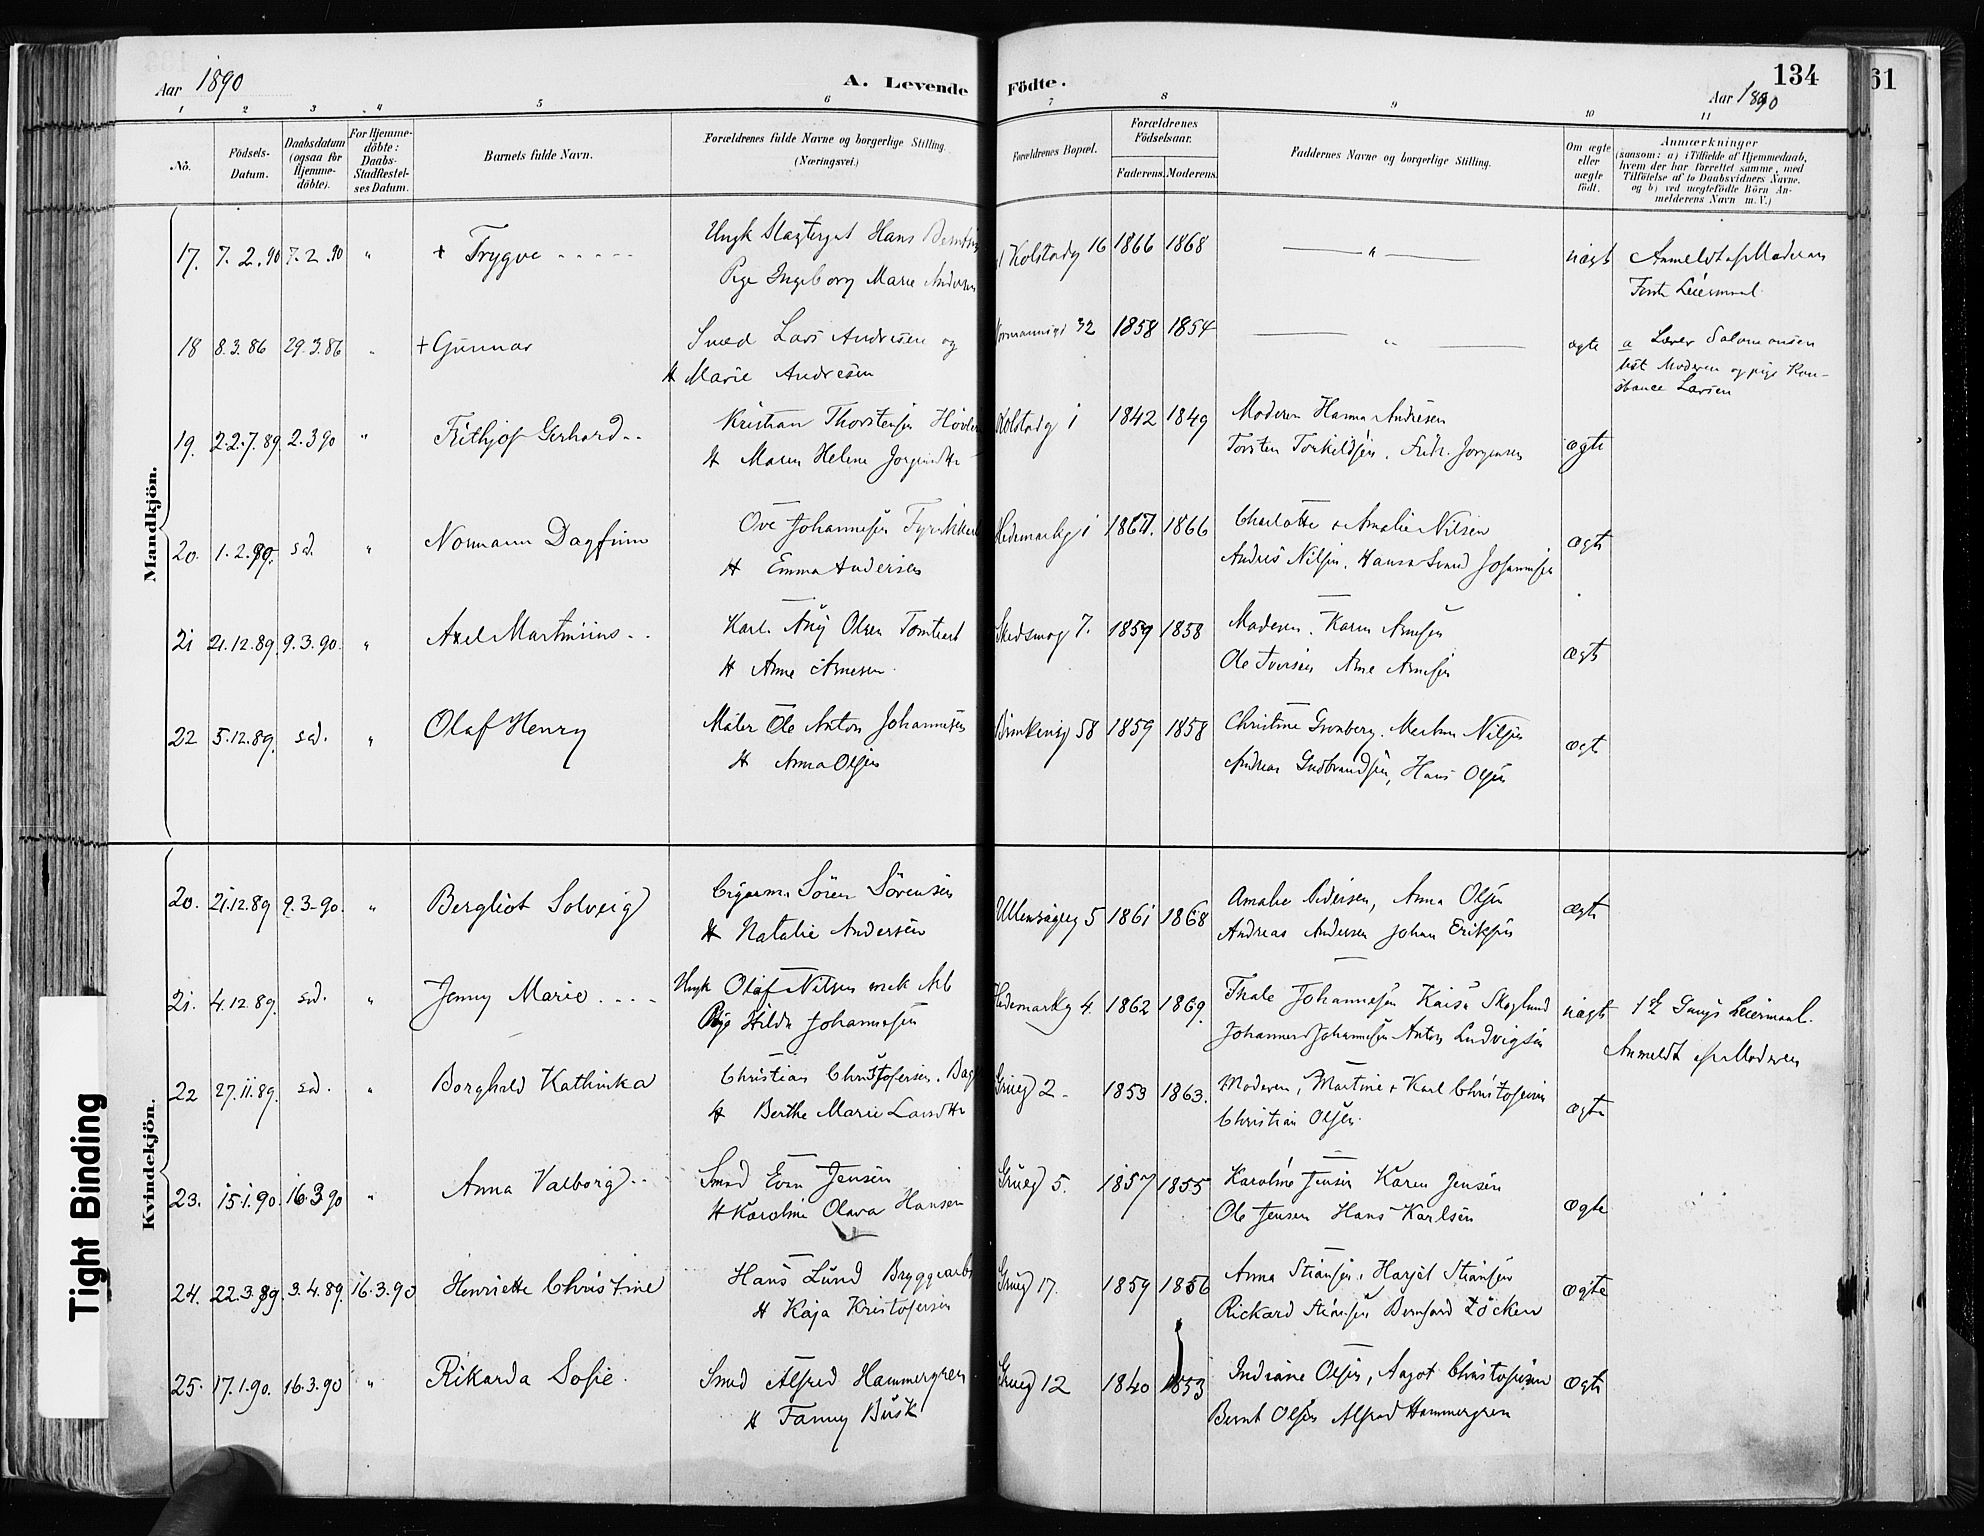 Aar 1890
A. Levende Födte.
134
Aar 1890
61
1 2 3 4 5 6 7 8 9 10 11
Nö.
Födsels-Datum.
Daabsdatum (ogsaa for Hjemme-döbte).
For Hjemme-döbte: Daabs-Stadfæstel-ses Datum.
Barnets fulde Navn.
Forældrenes fulde Navne og borgerlige Stilling. (Næringsvei.)
Forældrenes Bopæl.
Forældrenes Födselsaar.
Faderens. Moderens.
Faddernes Navne og borgerlige Stilling.
Om ægte eller uægte födt.
Anmærkninger
(saasom: a) i Tilfælde af Hjemmedaab,
hvem der har forrettet samme, med
Tilföielse af to Daabsvidners Navne.
og b) ved uægtefödte Börn An-
melderens Navn m. V.)
Mandkjön.
17. 7.2.90 7.2.90 " + Trygve Ungk Hans Kolstadg 16 1866 1868 " uægt Anmeldt af Moderen
Pige Ingeborg Marie Andersen Leiermaal
18 8.3.86 29.3.86 " + Gunnar Smed Lars Andresen og 32 1858 1854 " ægte a Salomonsen
H Marie Andresen Moderen og pige Kon-
stance Larsen
19. 22.7.89. 2.3.90 " Frithjof Gerhard Kristian Thorstensen Kolstadg 1 1842 1849 Moderen Hanna Andresen ægte
H Maren Helene Torsten Torkildsen, Fredr. Jorgensen
20. 1.2.89. sd. " Normann Dagfinn Ove Johannesen Hedemarkg 1 1867. 1866 Charlotte & Amalie Nilsen ægte
H Emma Andersen Andres Nilsen, Johannesen
21 21.12.89. 9.3.90. " Axel Martinius Karl Aug Olsen Tomtearb Skedsmog 7. 1859 1858 Moderen. Karen Arnesen ægte
H Anne Arnesen Ole Iversen Arne Arnesen
22 5.12.89. sd. " Olaf Henry Maler Ole Anton Johannesen 58 1859 1858 Christine Gronberg. Nilsen ægte
H Anna Olsen Andreas Gudbrandsen, Hans Olsen
Kvindekjön.
20. 21.12.89 9.3.90. " Bergliot Solveig Cigarm. Sören Sörensen Ullensagerg 5 1861 1868 Amalie Pedersen, Anna Olsen ægte
H Natalie Andersen Andreas Andersen Johan Eriksen
21. 4.12.89. sd. " Jenny Marie Ungk Olaf Nilsen mek Arb Hedemarkg 4. 1862 1869. Thale Johannesen Kaisa Skoglund uægte 1ste Gangs Leiermaal.
Pige Hilda Johannesen Johannes Johannesen Anton Ludvigsen Anmeldt af Moderen
22 27.11.89. sd. " Borghild Kathinka Christian Christofersen. Grueg 2. 1853 1863. Moderen, Martine & Karl Christofersen ægte
H Berthe Marie Larsdtr Christian Olsen
23. 15.1.90. 16.3.90 " Anna Valborg Smed Even Jensen Grueg 5. 1857 1855 Karoline Jensen Karen Jensen ægte
H Karoline Olava Hansen Ole Jensen Hans Karlsen
24. 22.3.89. 3.4.89. 16.3.90 Henriette Christine Hans Lund Bryggearb Grueg 17. 1859 1856 Anna Stiansen ægte
H Kaja Kristofersen Rickard Bernhard Löcken
25. 17.1.90. 16.3.90 " Rikarda Sofie Smed Alfred Hammergren Grueg 12 1840 1853 Indiane Olsen, Aagot Christofersen ægte
H Fanny Busk Bernt Olsen Alfred Hammergren
Tight Binding